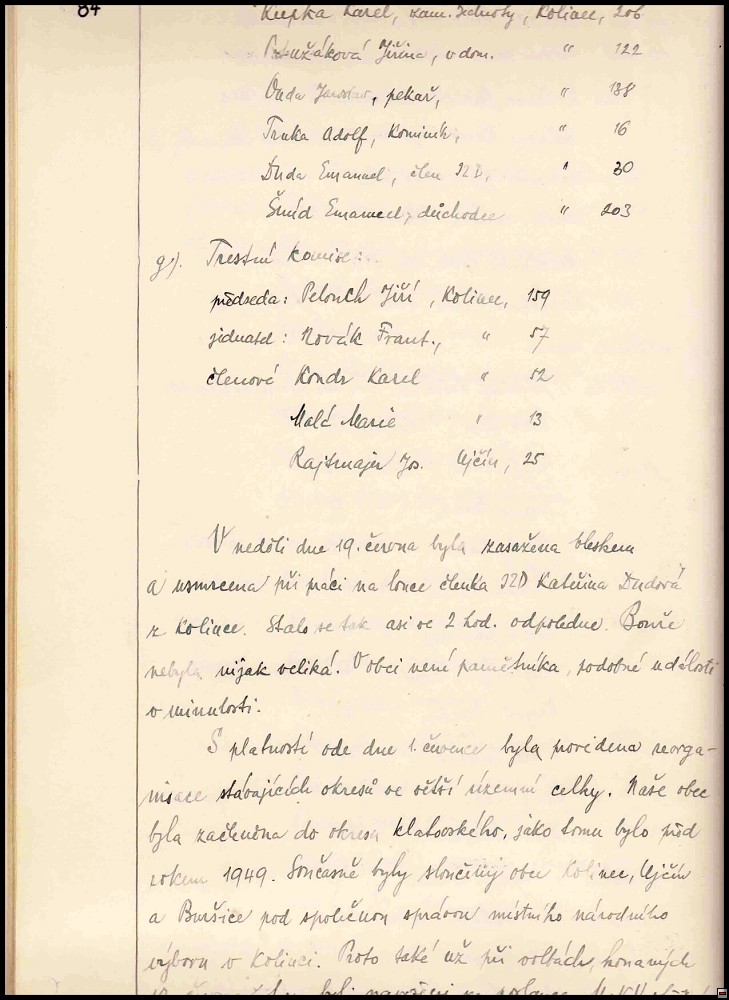 84
Kupka Karel, zam. Jednoty, Kolinec, 206
Jiřina, v dom. " 122
Duda Jaroslav, pekař, " 188
Trnka Adolf, kominík, " 16
Duda Emanuel, člen JZD, " 30
Šmíd Emanuel, důchodce " 203
g). Trestní komise:
předseda: Pelouch Jiří, Kolinec, 159
jednatel: Novák Frant., " 57
členové Kondr Karel " 52
Malá Marie " 13
Rajtmajer Jos. Ujčín, 25
V neděli dne 19. června byla zasažena bleskem
a usmrcena při práci na louce členka JZD Kateřina Dudová
z Kolince. Stalo se tak asi ve 2 hod. odpoledne. Bouře
nebyla nijak veliká. V obci není pamětníka, podobné události
v minulosti.
S platností ode dne 1. července byla provedena reorga-
nisace stávajících okresů ve větší územní celky. Naše obec
byla začleněna do okresu klatovského, jako tomu bylo před
rokem 1949. Současně byly sloučeny obce Kolinec, Ujčín
a Buršice pod společnou správou místního národního
výboru v Kolinci. Proto také už při volbách, konaných
byli navrženi